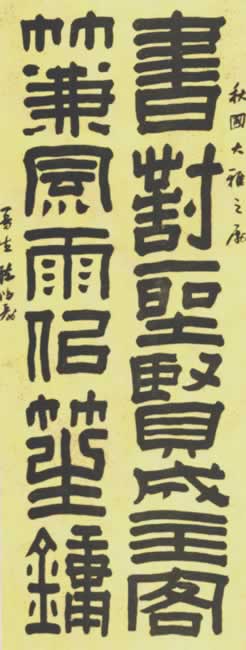 秋國大雅之屬
書對聖賢成主客
竹兼風雨佀笙鏞